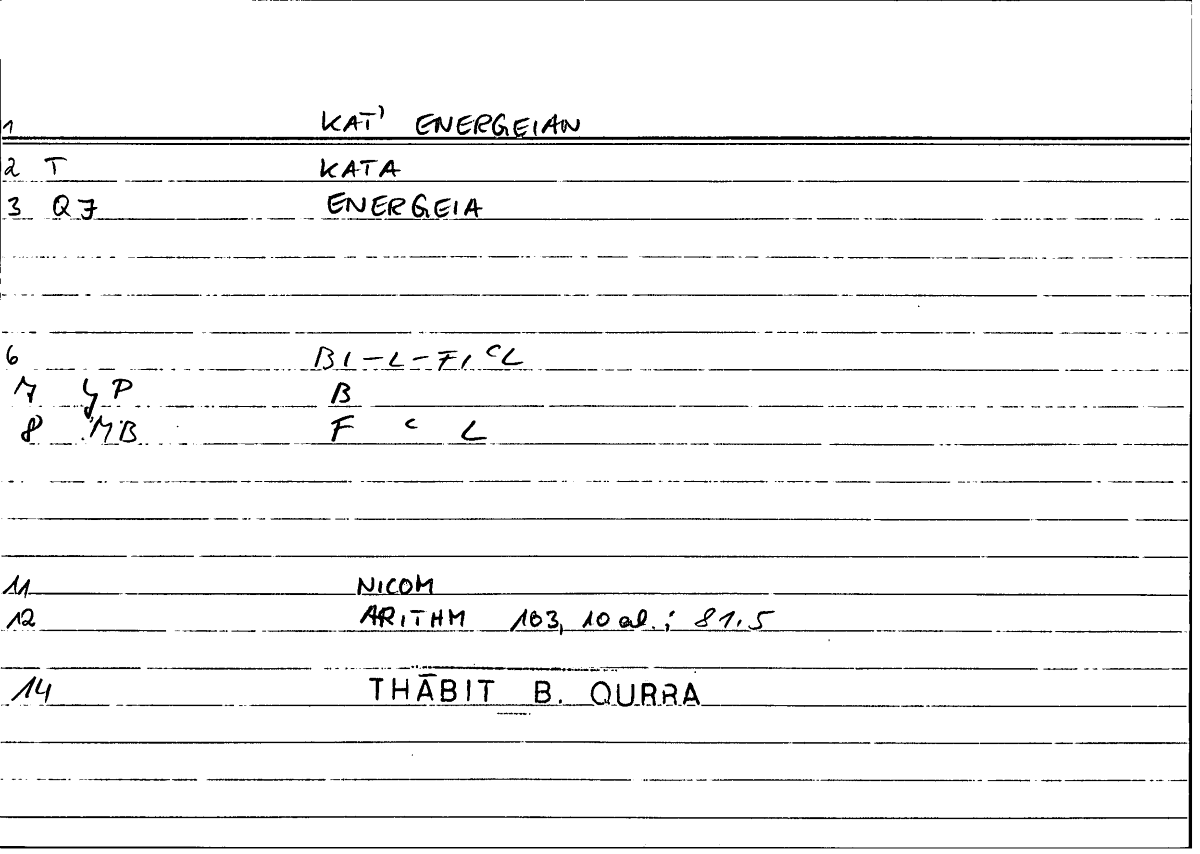 1 KAT' ENERGEIAN
2 T KATA
3 Q7 ENERGEIA
6 BI-L-FIᶜL
7 P B
8 MB F ᶜ L
11 NICOM
12 ARITHM 103, 10 al.; 81.5
14 THĀBIT B. QURRA